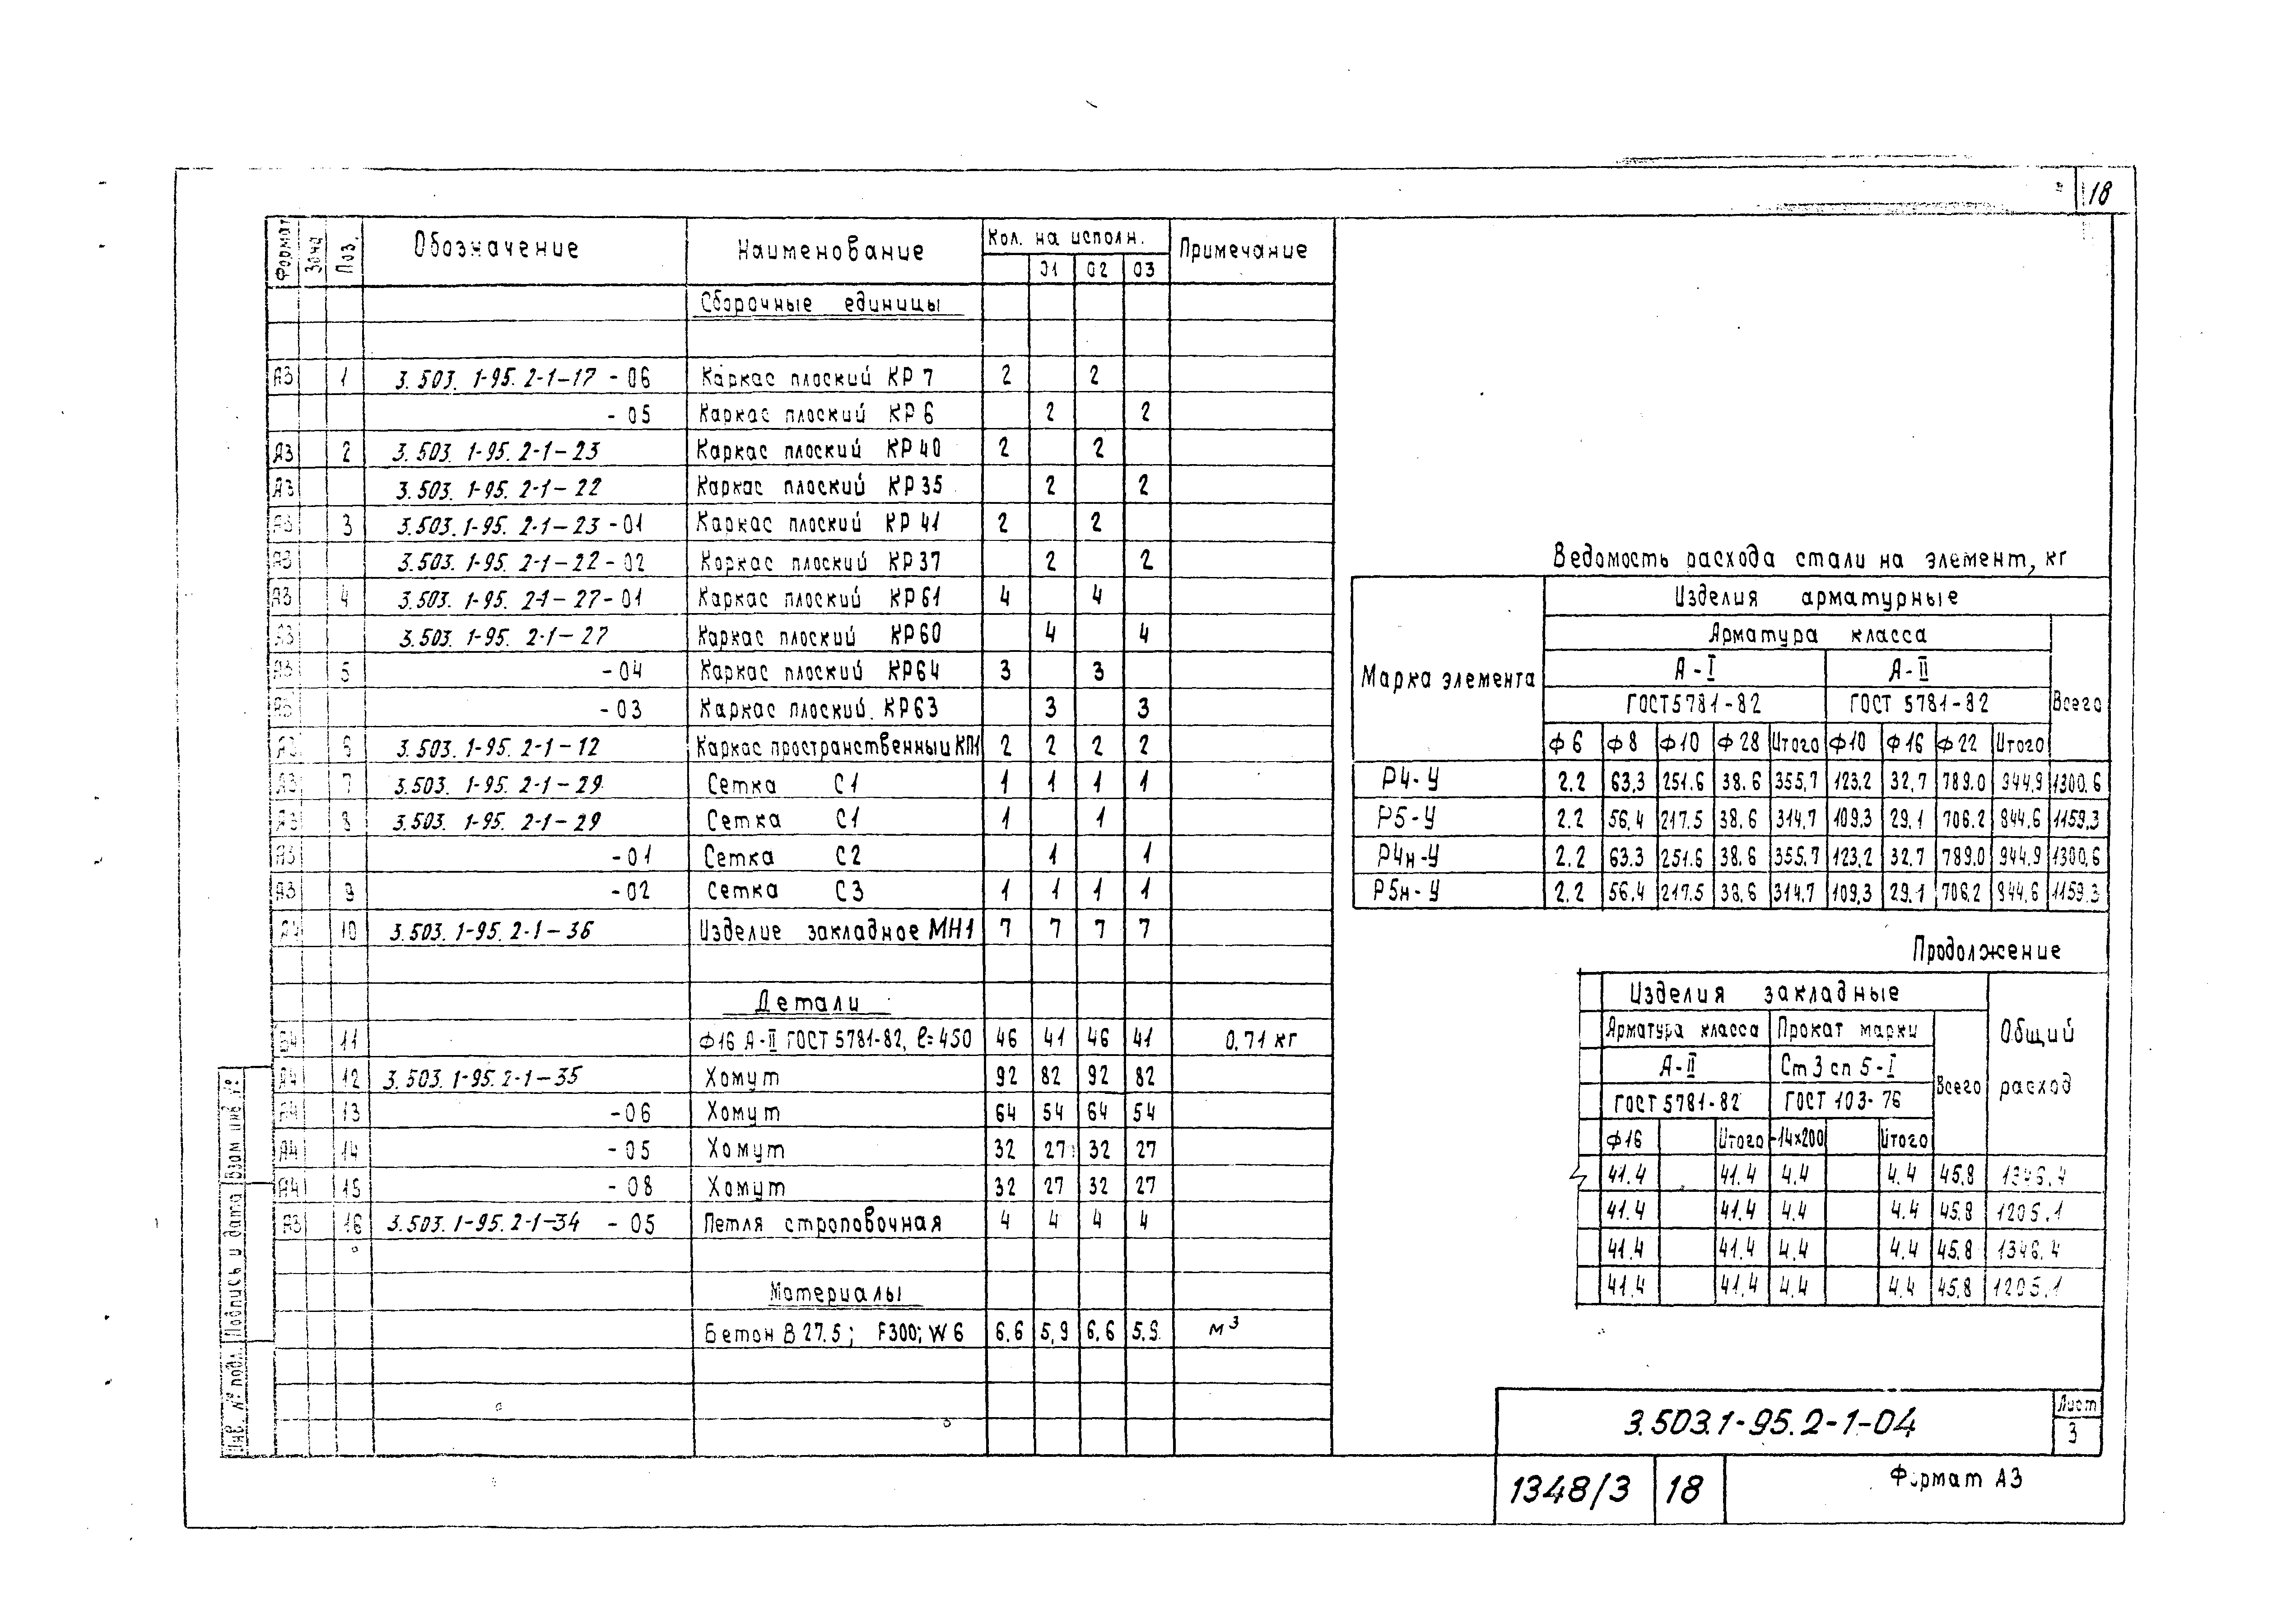 18
Формат Зона Поз. Обозначение Наименование Кол. на исполн. Примечание
01 02 03
Сборочные единицы
А3 1 3.503.1-95.2-1-17 - 06 Каркас плоский КР7 2 2
- 05 Каркас плоский КР6 2 2
А3 2 3.503.1-95.2-1-23 Каркас плоский КР40 2 2
А3 3.503.1-95.2-1-22 Каркас плоский КР35 2 2
А3 3 3.503.1-95.2-1-23-01 Каркас плоский КР41 2 2
А3 3.503.1-95.2-1-22-02 Каркас плоский КР37 2 2
А3 4 3.503.1-95.2-1-27-01 Каркас плоский КР61 4 4
А3 3.503.1-95.2-1-27 Каркас плоский КР60 4 4
А3 5 -04 Каркас плоский КР64 3 3
А3 -03 Каркас плоский КР63 3 3
А3 6 3.503.1-95.2-1-12 Каркас пространственный КП1 2 2 2 2
А3 7 3.503.1-95.2-1-29 Сетка С1 1 1 1 1
А3 8 3.503.1-95.2-1-29 Сетка С1 1 1
А3 -01 Сетка С2 1 1
А3 9 -02 Сетка С3 1 1 1 1
А4 10 3.503.1-95.2-1-36 Изделие закладное МН1 7 7 7 7
Детали
Б4 11 Ф16 А-II ГОСТ 5781-82, ℓ=450 46 41 46 41 0,71 кг
А4 12 3.503.1-95.2-1-35 Хомут 92 82 92 82
А4 13 -06 Хомут 64 54 64 54
А4 14 -05 Хомут 32 27 32 27
А4 15 -08 Хомут 32 27 32 27
А3 16 3.503.1-95.2-1-34 - 05 Петля строповочная 4 4 4 4
Материалы
Бетон В 27.5; F300; W6 6,6 5,9 6,6 5,9 м³
Ведомость расхода стали на элемент, кг
Марка элемента Изделия арматурные
Арматура класса Всего
А-I А-II
ГОСТ 5781-82 ГОСТ 5781-82
Ф6 Ф8 Ф10 Ф28 Итого Ф10 Ф16 Ф22 Итого
Р4-У 2.2 63.3 251.6 38.6 355,7 123,2 32,7 789.0 944,9 1300,6
Р5-У 2.2 56,4 217.5 38,6 314,7 109.3 29.1 706.2 844,6 1159,3
Р4н-У 2.2 63.3 251.6 38,6 355,7 123,2 32.7 789.0 944.9 1300,6
Р5н-У 2.2 56.4 217.5 38,6 314.7 109,3 29.1 706,2 844,6 1159.3
Продолжение
Изделия закладные Общий расход
Арматура класса Прокат марки Всего
А-II Ст3 сп 5-I
ГОСТ 5781-82 ГОСТ 103-76
Ф16 Итого -14х200 Итого
41.4 41.4 4,4 4.4 45,8 1346,4
41.4 41,4 4.4 4.4 45.8 1205.1
41.4 41.4 4.4 4.4 45.8 1346.4
41.4 41.4 4.4 4.4 45.8 1205.1
Инв. № подл. Подпись и дата Взам инв №
3.503.1-95.2-1-04
Лист
3
1348/3 18 Формат А3